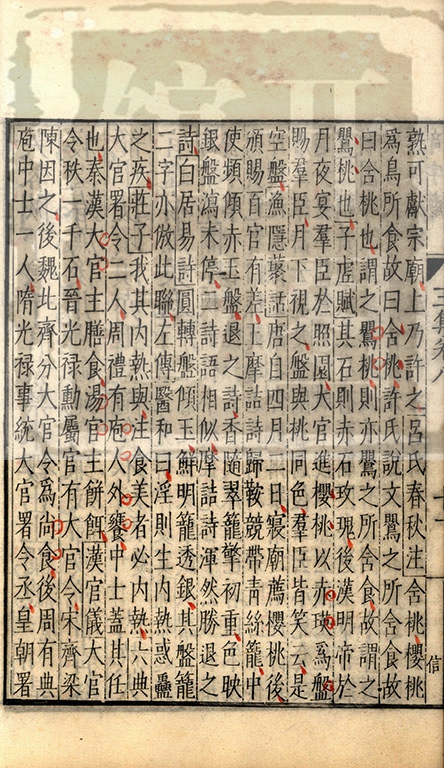 熟可獻宗廟上乃許之呂氏春秋注含桃櫻桃
為鳥所食故曰含桃許氏說文鸎之所含食故
曰含桃也謂之鸎桃則亦鸎之所含食故謂之
鸎桃也子虛賦其石則赤石玫瑰後漢明帝於
月夜宴羣臣於照園大官進櫻桃以赤瑛為盤
賜羣臣月下視之盤與桃同色羣臣皆笑云是
空盤漁隱叢話唐自四月二日寢廟薦櫻桃後
頒賜百官有差上摩詰詩歸鞍競帶青絲籠中
使頻傾赤玉盤退之詩香隨翠籠擎初重色映
銀盤瀉未停二詩語相似摩詰詩渾然勝退之
詩白居易詩圓轉盤傾玉鮮明籠透銀其盤籠
二字亦倣此聯左傳醫和曰淫則生內熱惑蠱
之疾莊子我其內熱與注食美者必內熱六典
大官署令二人周禮有庖人外饔中士蓋其任
也秦漢大官主膳食湯官主餅餌漢官儀大官
令秩一千石晉光祿勳屬官有大官令宋齊梁
陳因之後魏北齊分大官令為尚食後周有典
庖中士一人隋光祿事統大官署令丞皇朝署
信